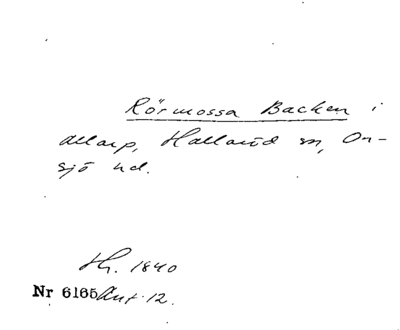 Rörmossa Backen i
Allarp, Hallaröd sn, On-
sjö hd.
Hr. 1840
Nr 6165 Ant. 12.